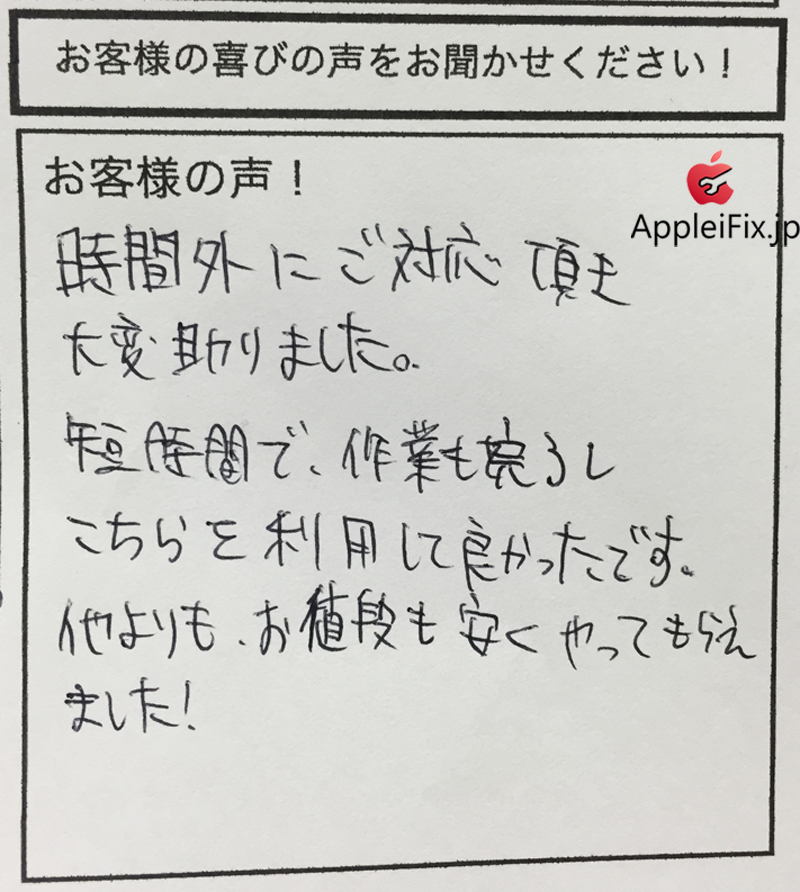 お客様の喜びの声をお聞かせください！
お客様の声！
AppleiFix.jp
時間外にご対応頂き
大変助りました。
短時間で、作業も完了し
こちらを利用して良かったです。
他よりも、お値段も安くやってもらえ
ました！